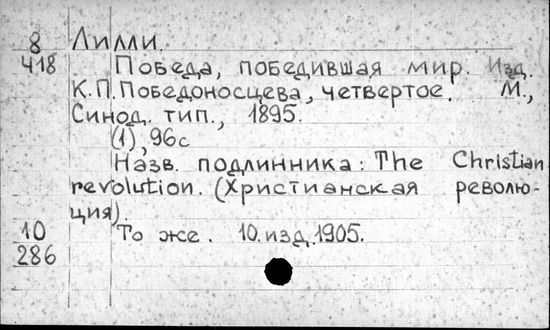 8 Лилли.
418 Победа, победившая мир. Изд.
К.П.Победоносцева, четвертое. М.,
Синод. тип., 1895.
(1), 96с
Назв. подлинника: The Christian
revolution. (Христианская револю-
ция).
10 То же. 10.изд.1905.
286